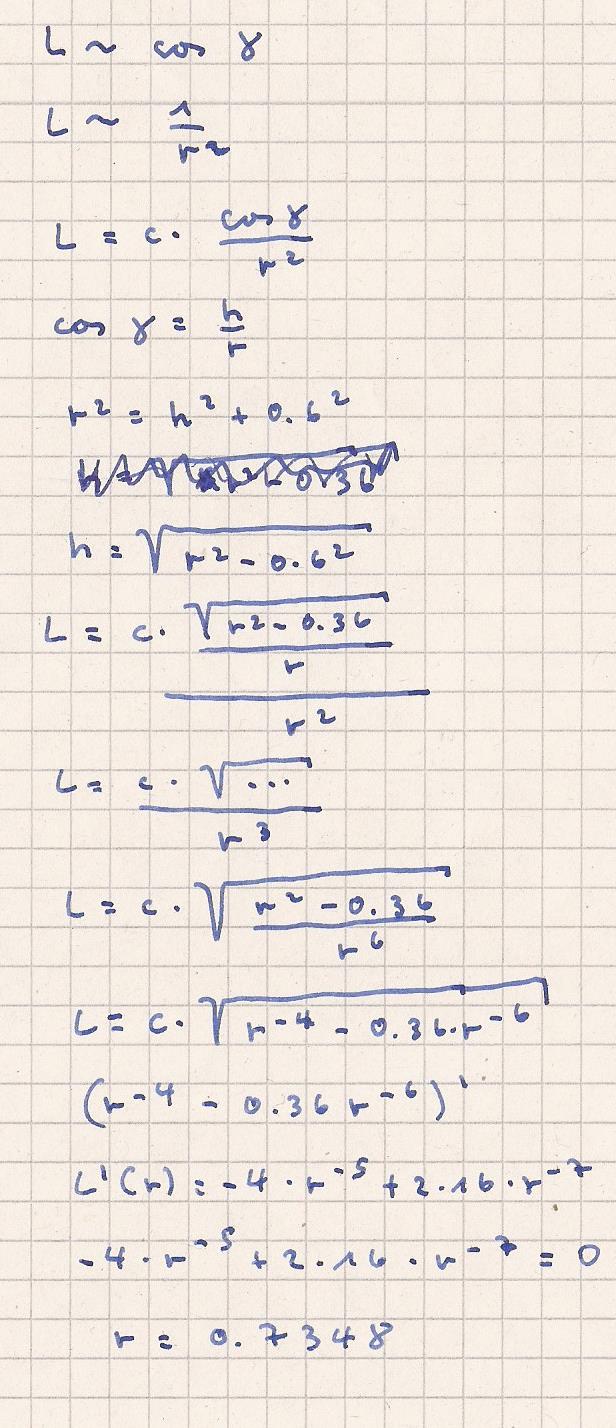 L ~ cos γ
L ~ 1/r²
L = c · cos γ / r²
cos γ = h/r
r² = h² + 0.6²
h = √(r² - 0.6²)
L = c · (√(r² - 0.36) / r) / r²
L = c · √... / r³
L = c · √((r² - 0.36) / r⁶)
L = c · √(r⁻⁴ - 0.36 · r⁻⁶)
(r⁻⁴ - 0.36 r⁻⁶)'
L'(r) = -4 · r⁻⁵ + 2.16 · r⁻⁷
-4 · r⁻⁵ + 2.16 · r⁻⁷ = 0
r = 0.7348